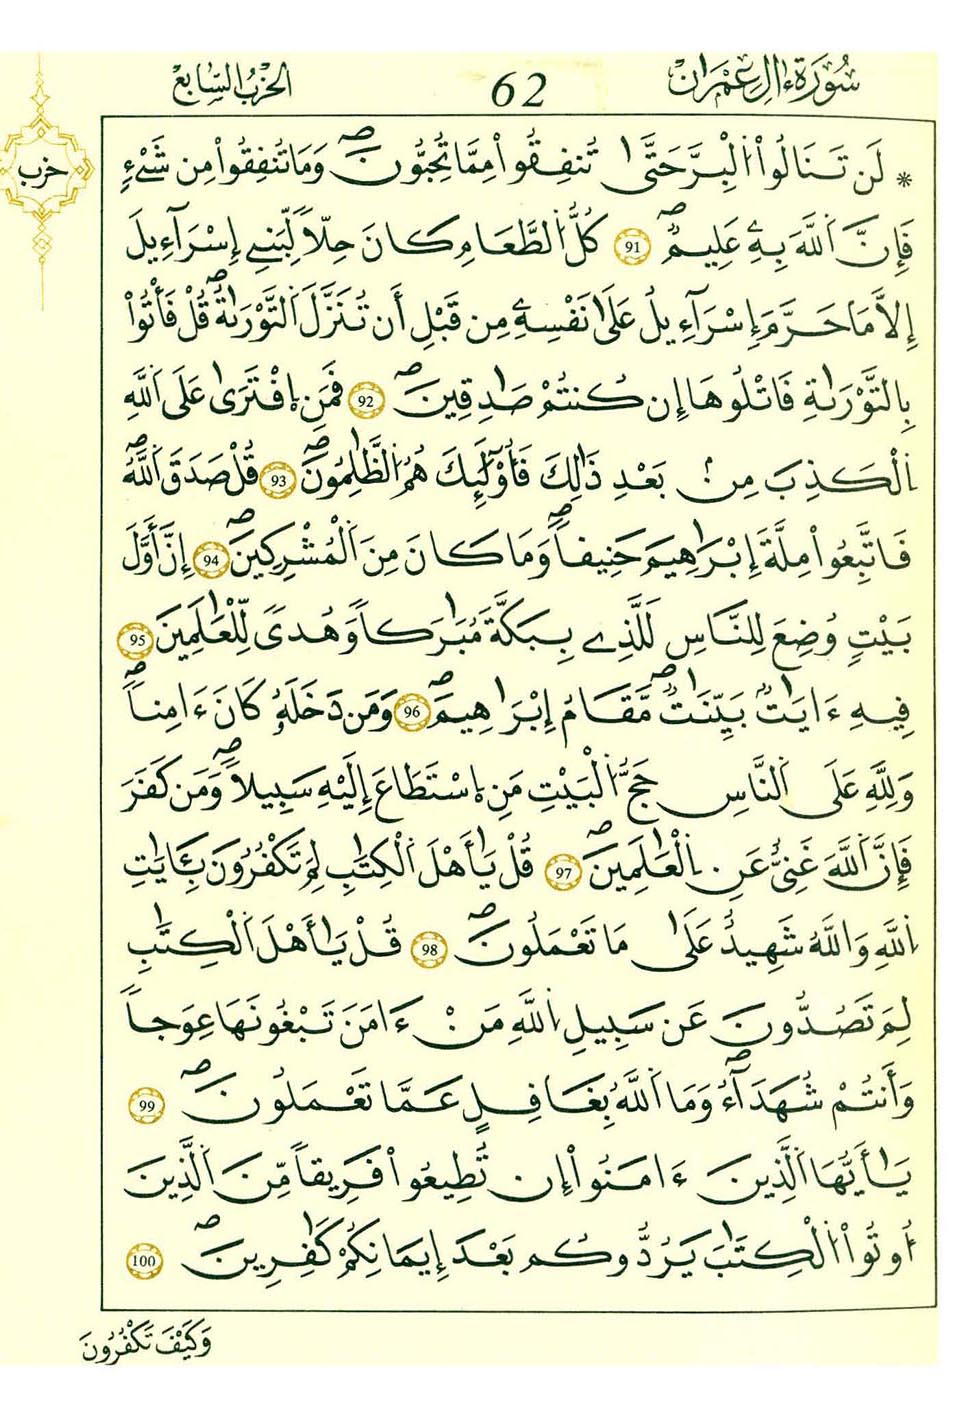 سُورَةُ ءَالِ عِمْرَانَ
62
الحِزْبُ السَّابِع
حزب
* لَن تَنَالُواْ اُلْبِرَّ حَتَّىٰ تُنفِقُواْ مِمَّا تُحِبُّونَۖ وَمَا تُنفِقُواْ مِن شَےْءٖ
فَإِنَّ اَللَّهَ بِهِۦ عَلِيمٞۖ 91 كُلُّ اُلطَّعَامِ كَانَ حِلّاٗ لِّبَنِےٓ إِسْرَآءِيلَ
إِلَّا مَا حَرَّمَ إِسْرَآءِيلُ عَلَىٰ نَفْسِهِۦ مِن قَبْلِ أَن تُنَزَّلَ اَلتَّوْرَىٰةُۖ قُلْ فَأْتُواْ
بِالتَّوْرَىٰةِ فَاتْلُوهَا إِن كُنتُمْ صَٰدِقِينَۖ 92 فَمَنِ اِفْتَرَىٰ عَلَى اَللَّهِ
اِلْكَذِبَ مِنۢ بَعْدِ ذَٰلِكَ فَأُوْلَٰٓئِكَ هُمُ اُلظَّٰلِمُونَۖ 93 قُلْ صَدَقَ اَللَّهُۖ
فَاتَّبِعُواْ مِلَّةَ إِبْرَٰهِيمَ حَنِيفاٗۖ وَمَا كَانَ مِنَ اَلْمُشْرِكِينَۖ 94 إِنَّ أَوَّلَ
بَيْتٖ وُضِعَ لِلنَّاسِ لَلَّذِے بِبَكَّةَ مُبَٰرَكاٗ وَهُدىٗ لِّلْعَٰلَمِينَ 95
فِيهِ ءَايَٰتُۢ بَيِّنَٰتٞۖ مَّقَامُ إِبْرَٰهِيمَۖ 96 وَمَن دَخَلَهُۥ كَانَ ءَامِناٗۖ
وَلِلَّهِ عَلَى اَلنَّاسِ حَجُّ اُلْبَيْتِ مَنِ اِسْتَطَاعَ إِلَيْهِ سَبِيلاٗۖ وَمَن كَفَرَ
فَإِنَّ اَللَّهَ غَنِيٌّ عَنِ اِلْعَٰلَمِينَۖ 97 قُلْ يَٰأَهْلَ اَلْكِتَٰبِ لِمَ تَكْفُرُونَ بِـَٔايَٰتِ
اِللَّهِ وَاللَّهُ شَهِيدٌ عَلَىٰ مَا تَعْمَلُونَۖ 98 قُلْ يَٰأَهْلَ اَلْكِتَٰبِ
لِمَ تَصُدُّونَ عَن سَبِيلِ اِللَّهِ مَنْ ءَامَنَ تَبْغُونَهَا عِوَجاٗ
وَأَنتُمْ شُهَدَآءُۖ وَمَا اَللَّهُ بِغَٰفِلٍ عَمَّا تَعْمَلُونَۖ 99
يَٰأَيُّهَا اَلَّذِينَ ءَامَنُواْ إِن تُطِيعُواْ فَرِيقاٗ مِّنَ اَلَّذِينَ
أُوتُواْ اُلْكِتَٰبَ يَرُدُّوكُم بَعْدَ إِيمَٰنِكُمْ كَٰفِرِينَۖ 100
وَكَيْفَ تَكْفُرُونَ